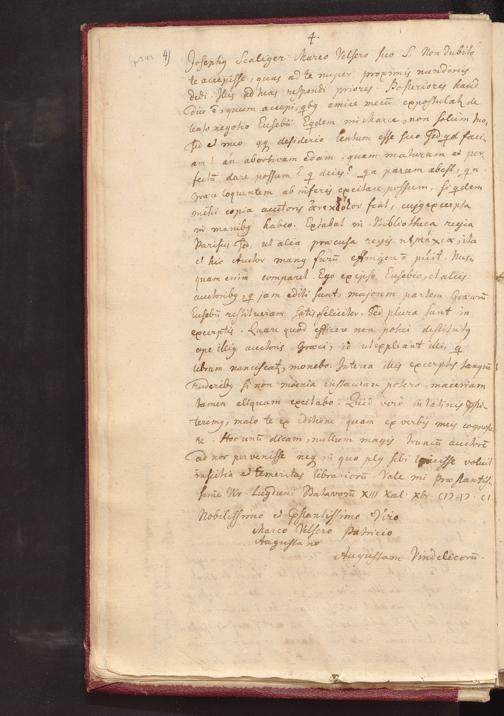 4.
4) Josephus Scaliger Marco Velsero suo S. Non dubito
te accepisse, quas ad te nuper, proximis nundinis
dedi. Illis ad tuas respondi priores. Posteriores haud
diu e, quum accepi, qbg amice mecu expostulas de
lento negotio Eusebii. Eqdem mi Marce, non solum tuo,
sed et meo qq desiderio lentum esse scio. Sed qd faci-
am? an abortivum edam, quem maturum et per
fectu dare possum? q deies? qa parum abest, qn
Graece loquentem ab inferis excitare possum, si qdem
mihi copia auctoris fiat, cujg excerpta
in manibg habeo. Extabat in Bibliotheca regia
Parisiis, sed, ut alia procusa regis, ita
et hic Auctor manus furu effugere n potuit. Nus-
quam enim comparet. Ego ex ipso Eusebio, et aliis
auctoribg, q jam editi sunt, majorem partem Graecoru
Eusebii restitueram satis feliciter. Sed plura sunt in
excerptis. Quare quod efficere non potui destitutg
ope illig auctoris Graeci, id ut expleant illi, q
librum nanciscentr, monebo. Interea illis excerptis tanqm
ruderibg si non moenia instaurare potero, maceriam
tamen aliquam excitabo. Quid vero in latinis psti-
terimg, malo te ex editione, quam ex verbis meis cognosce-
re. Hoc unu dicam, nullum magis truncu auctore
ad nos pervenisse neq in quo plg sibi licuisse voluit
inscitia et temeritas librarioru. Vale mi praestantis-
sime Vir. Lugduni Batavoru XIII Kal. Xbr. CIↃ.IↃ.CI
Nobilissimo et Pstantissimo Viro
Marco Velsero Patricio
Augustano
Augustam Vindelicoru